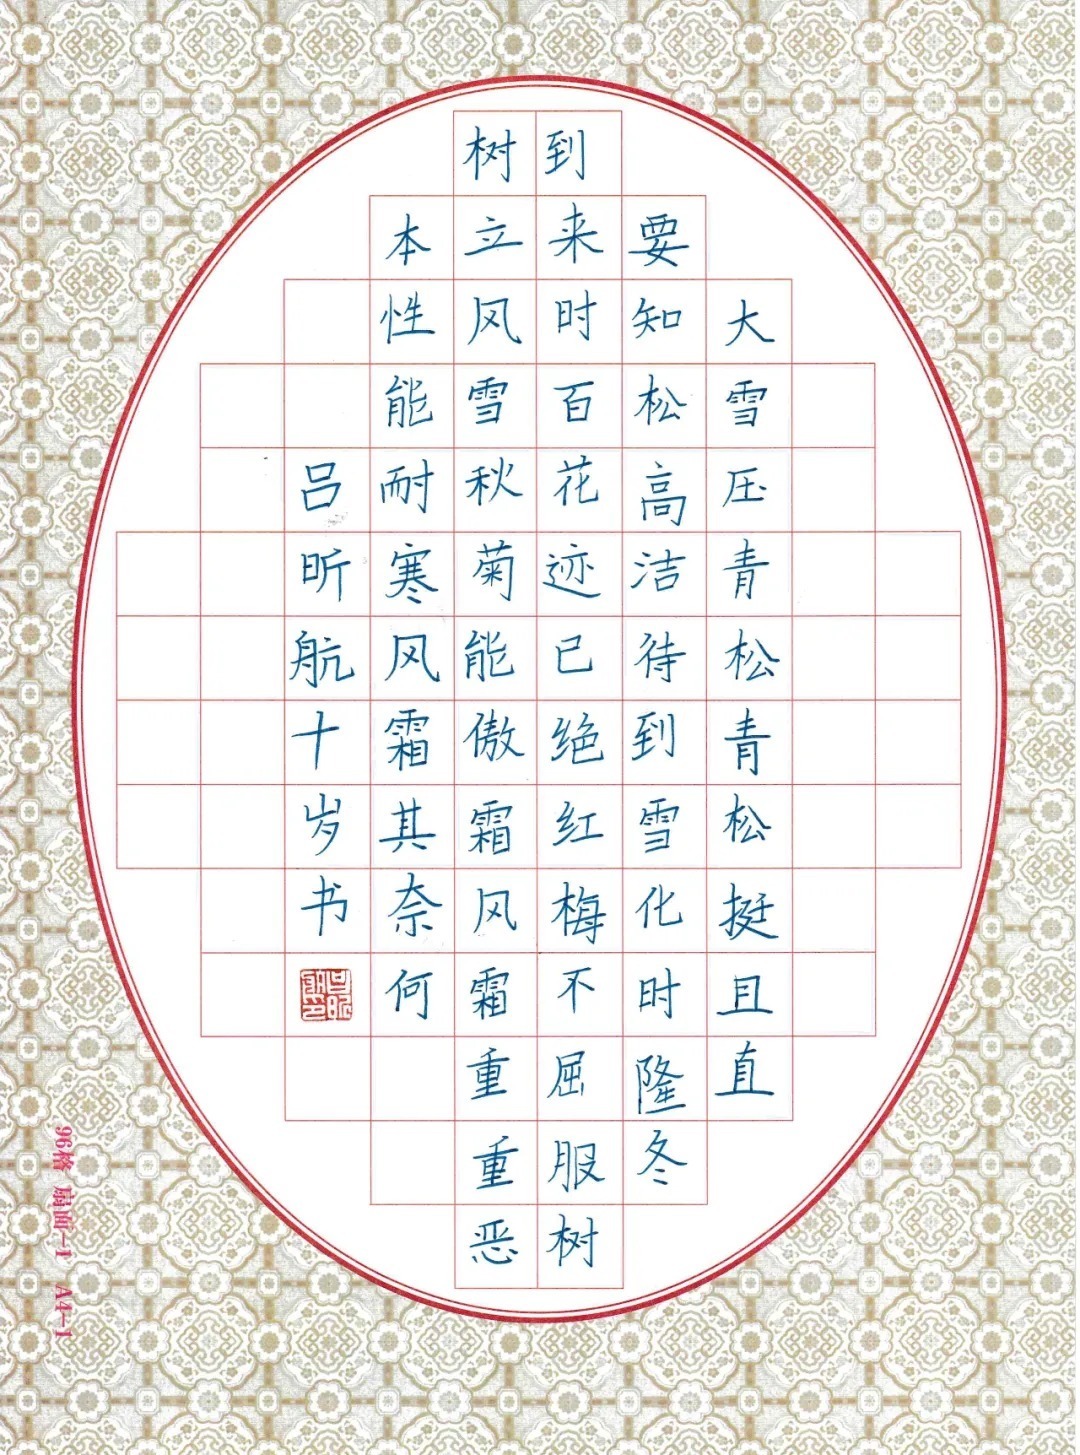 大雪压青松青松挺且直
要知松高洁待到雪化时隆冬
到来时百花迹已绝红梅不屈服树
树立风雪秋菊能傲霜风霜重重恶
本性能耐寒风霜其奈何
吕昕航十岁书
吕昕航印
96格 扇面-1 A4-1